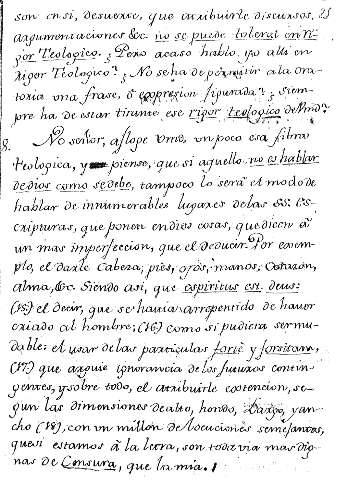 son en si, desuerte, que atribuirle discursos, 25
argumentaciones &c. no se puede tolerar en ri-
gor Teologico. ¿Pero acaso hablo yo alli en
rigor Teologico? ¿No se ha de permitir a la ora-
toria una frase, ò expresion figurada? ¿Siem-
pre ha de estar tirante ese rigor teologico de Vmd?
8. No señor, aflope Vmd. un poco esa fibra
teologica, y piense, que si aquello no es hablar
de dios como se debe, tampoco lo serà el modo de
hablar de innumerables lugares de las SS. Es-
cripturas, que ponen en dios cosas, que dicen aũ
un mas imperfeccion, que el deducir. Por exem-
plo, el darle Cabeza, pies, ojos, manos, Corazon,
alma, &c. Siendo asi, que espiritus est deus:
(15) el decir, que se havia arrepentido de haver
criado al hombre; (16) como si pudiera ser mu-
dable: el usar de las particulas forte y forsitam,
(17) que arguie ignorancia de los futuros contin-
gentes, y sobre todo, el atribuirle extencion, se-
gun las dimensiones de alto, hondo, Largo, y an-
cho (18), con un millon de locuciones semejantes,
que si estamos à la letra, son todavia mas dig-
nas de Censura, que la mia.